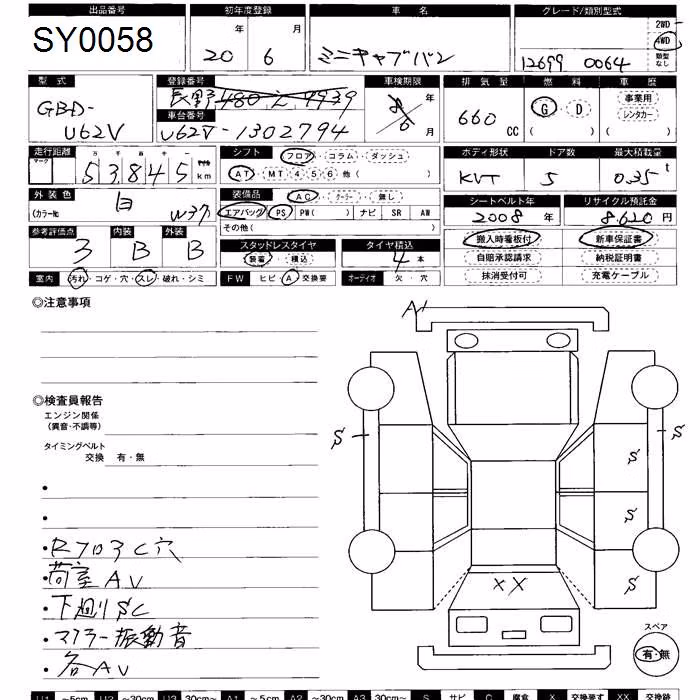 出品番号 初年度登録 車名 グレード/類別型式
SY0058 20年 6月 ミニキャブバン 12699 0064 2WD 4WD 類型なし
型式 登録番号 車検期限 排気量 燃料 車歴
GBD-U62V 長野480え4939 年 月 660CC G・D 事業用 レンタカー
車台番号
U62V-1302794
走行距離 シフト フロア・コラム・ダッシュ ボディ形状 ドア数 最大積載量
マーク 53845km AT・MT 4 5 6 他( ) KVT 5 0.35t
外装色 白 (カラーNo W37) 装備品 AC・クーラー・無し シートベルト年 リサイクル預託金
エアバッグ PS PW( ) ナビ SR AW 2008年 8.620円
その他( )
参考評価点 内装 外装 搬入時看板付 新車保証書
3 B B スタッドレスタイヤ タイヤ積込 自賠承認請求 納税証明書
装着・積込 4本 抹消受付可 充電ケーブル
室内 汚れ・コゲ・穴・スレ・破れ・シミ FW ヒビ・A・交換要 オーディオ 欠・穴
◎注意事項
A1
◎検査員報告
エンジン関係
(異音・不調等)
タイミングベルト
交換 有・無
S S S
S
S
XX
・RフロアC穴
・荷室AV
・下廻りSC
・マフラー振動音
・各AV
スペア
有・無
U1 ～5cm U2 ～30cm U3 30cm～ A1 ～5cm A2 ～30cm A3 30cm～ S サビ C 腐食 X 交換要す XX 交換跡